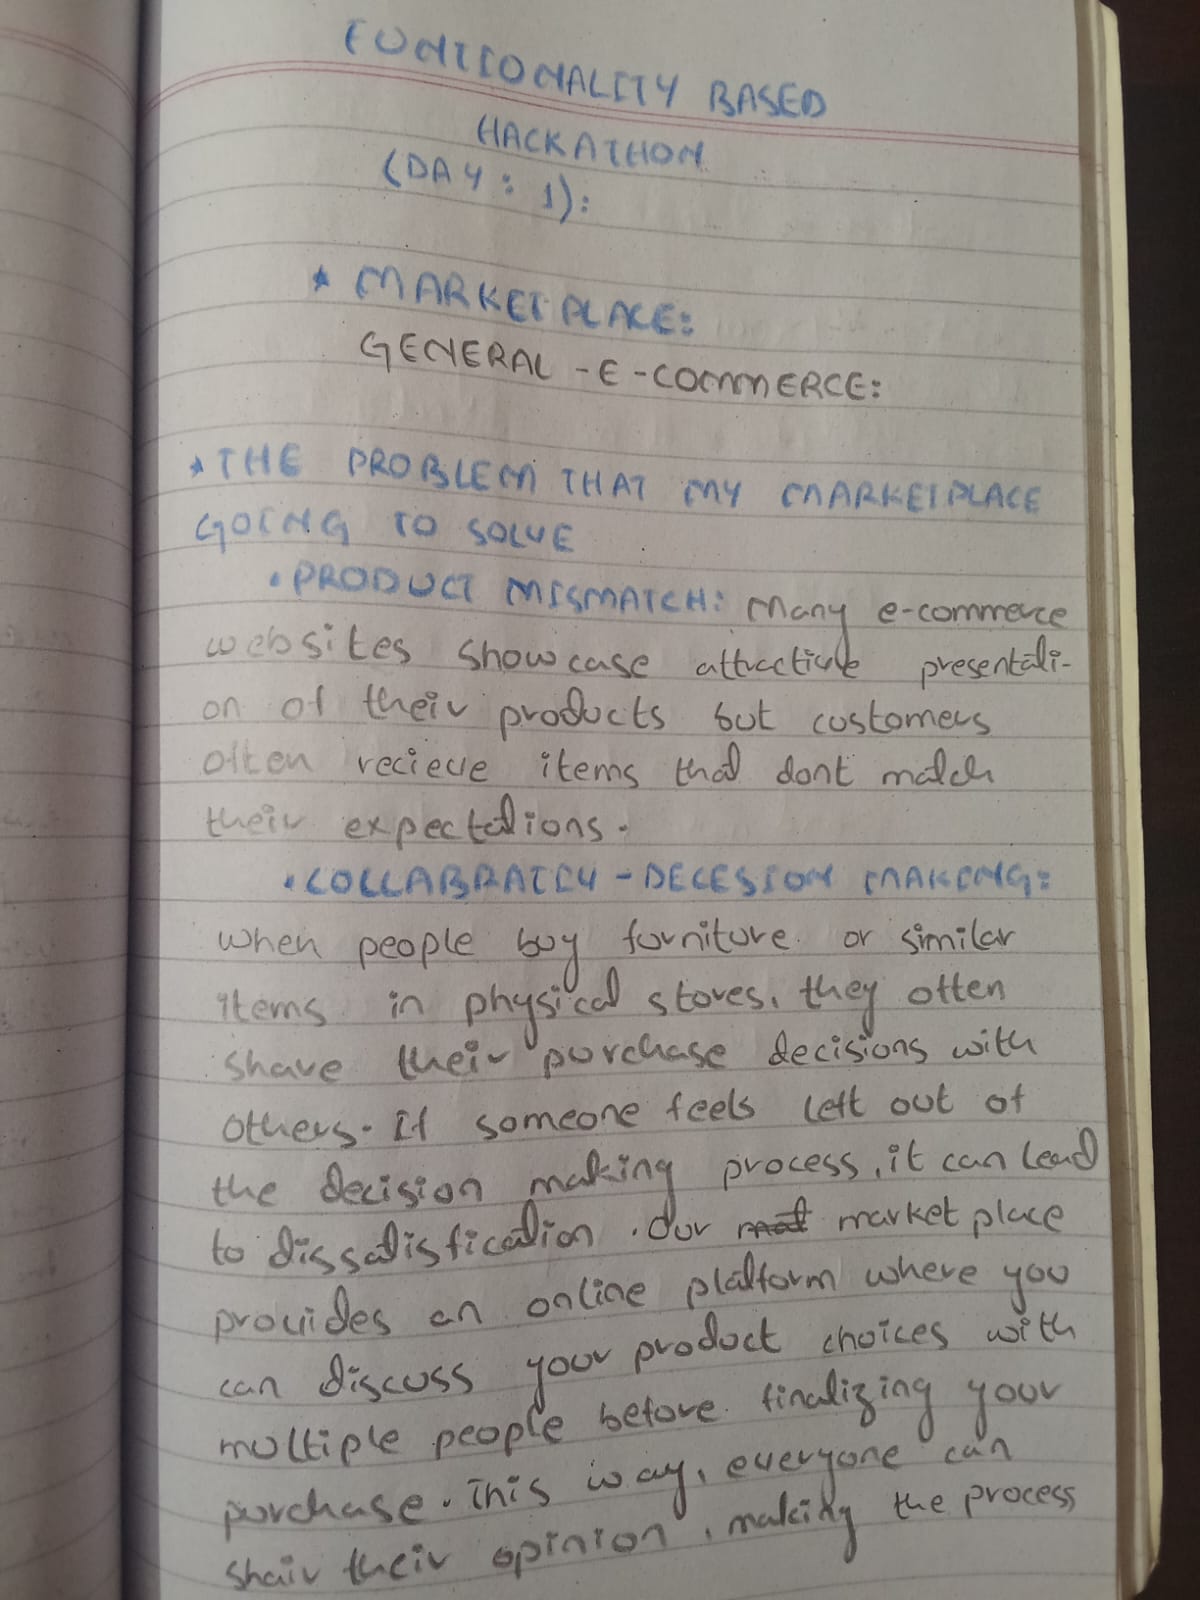 FUNTIONALITY BASED
HACKATHON
(DAY: 1):
* MARKETPLACE:
GENERAL-E-COMMERCE:
* THE PROBLEM THAT MY MARKETPLACE
GOING TO SOLVE
• PRODUCT MISMATCH: Many e-commerce
websites showcase attractive presentati-
on of their products but customers
often recieve items that dont match
their expectations.
• COLLABRATIY-DECESION MAKING:
when people buy furniture or similar
items in physical stores, they often
share their purchase decisions with
others. If someone feels left out of
the decision making process, it can lead
to dissatisfication. Our market place
provides an online platform where you
can discuss your product choices with
multiple people before finalizing your
purchase. This way, everyone can
shair their opinion, making the process